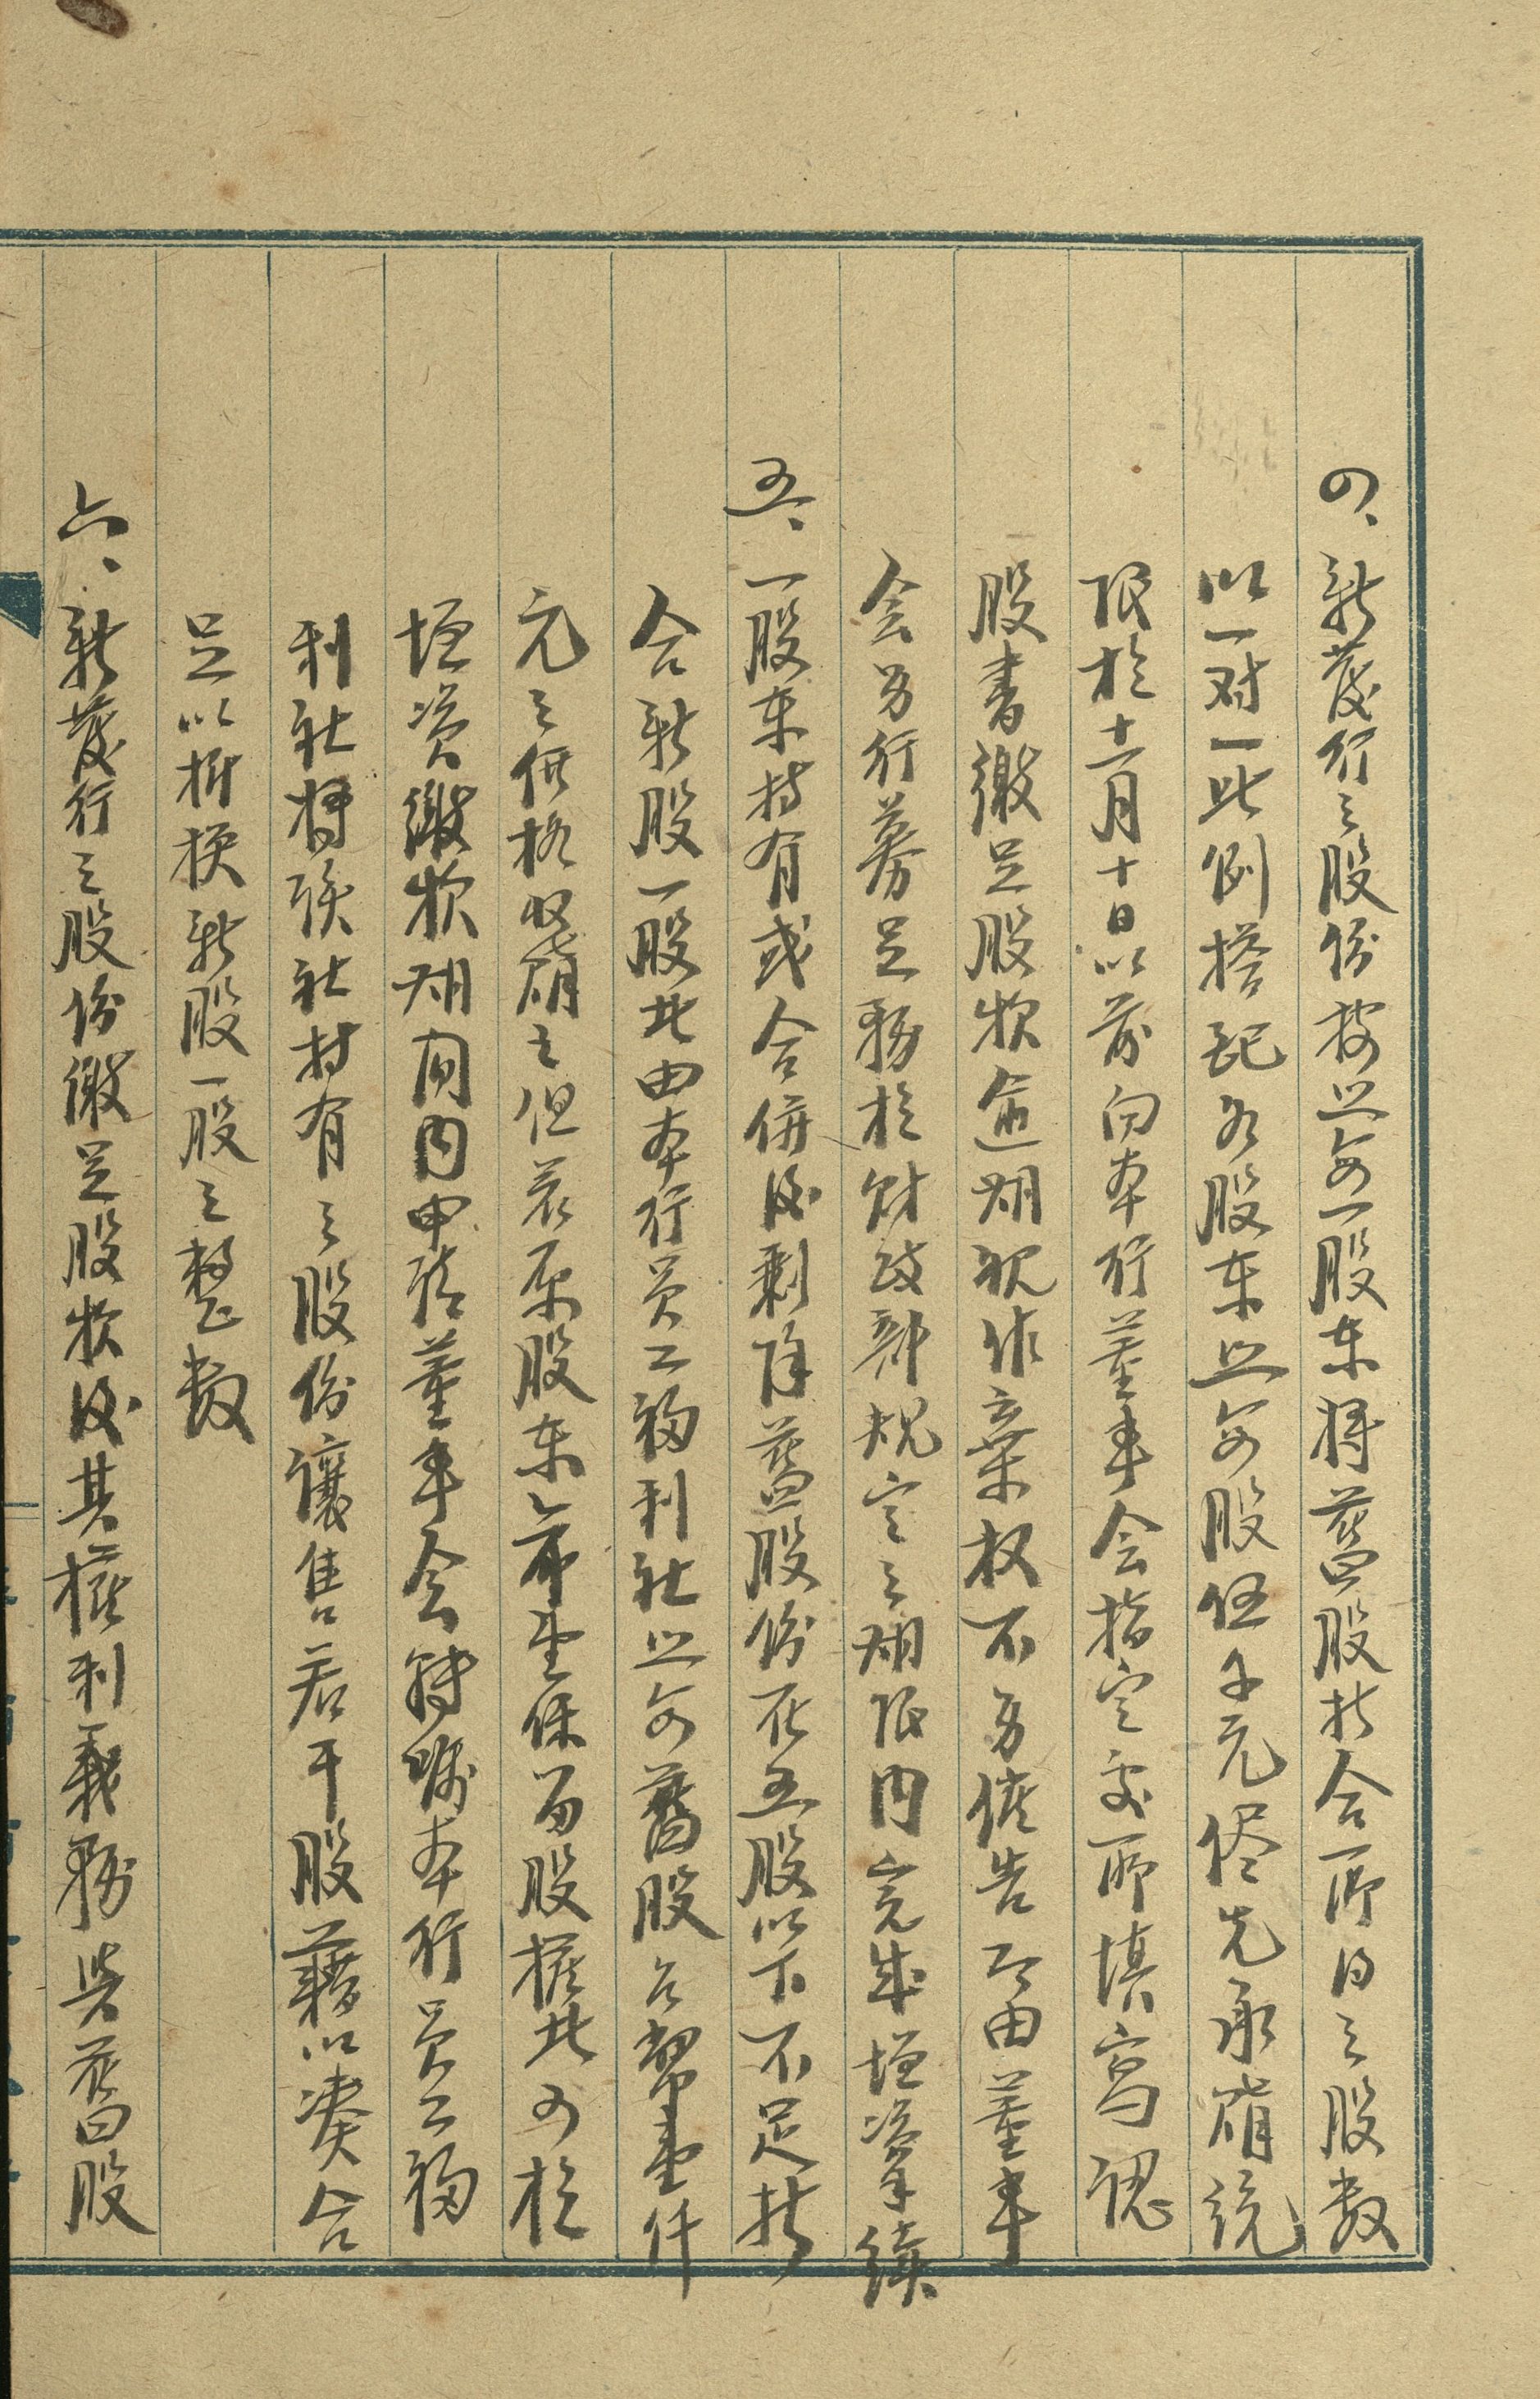 四、新發行之股份按照每一股东將舊股折合所得之股數
以一对一比例搭配各股东照每股伍千元优先承購統
限於十二月十日以前向本行董事会指定處所填寫認
股書繳足股款逾期視作棄权不另催告即由董事
会另行募足務於財政部規定之期限内完成增資手續
五、一股东持有或合併後剩餘舊股份在五股以下不足折
合新股一股者由本行员工福利社照每舊股国幣壹仟
元之價格收購之但若原股东希望保留股權者可於
增资繳款期間内申請董事会轉嘱本行员工福
利社將該社持有之股份讓售若干股藉以湊合
足以折换新股一股之整數
六、新發行之股份繳足股款後其權利義務與舊股